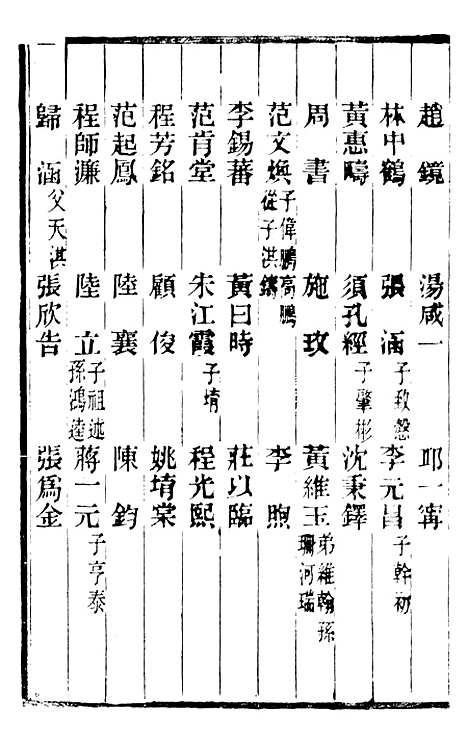 趙鏡 湯咸一 邱一𡩋
林中鶴 張涵子致慤 李元昌子幹初
黃惠疇 須孔經子肇彬 沈秉鐸
周書 施玫 黃維玉弟維翰孫珊河瑞
范文煥子偉鵬高鵬從子淇鑄 李煦
李錫蕃 黃曰時 莊以臨
范肯堂 朱江霞子堉 程光熙
程芳銘 顧俊 姚堉棠
范起鳳 陸襄 陳鈞
程師濂 陸立子祖述孫鴻逵 蔣一元子亨泰
歸涵父天淇 張欣告 張爲金